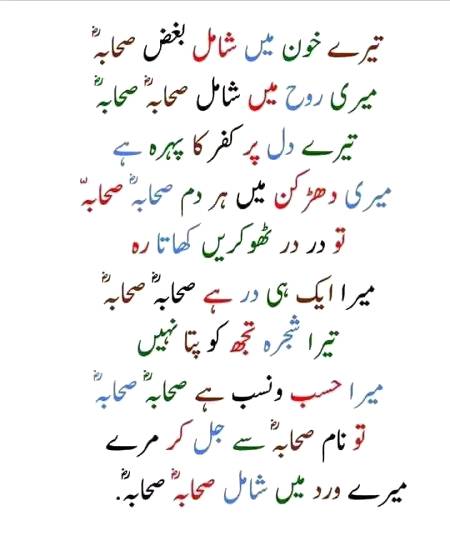 تیرے خون میں شامل بغض صحابہؓ
میری روح میں شامل صحابہؓ صحابہؓ
تیرے دل پر کفر کا پہرہ ہے
میری دھڑکن میں ہر دم صحابہؓ صحابہؓ
تو در در ٹھوکریں کھاتا رہ
میرا ایک ہی در ہے صحابہؓ صحابہؓ
تیرا شجرہ تجھ کو پتا نہیں
میرا حسب ونسب ہے صحابہؓ صحابہؓ
تو نام صحابہؓ سے جل کر مرے
میرے ورد میں شامل صحابہؓ صحابہؓ.